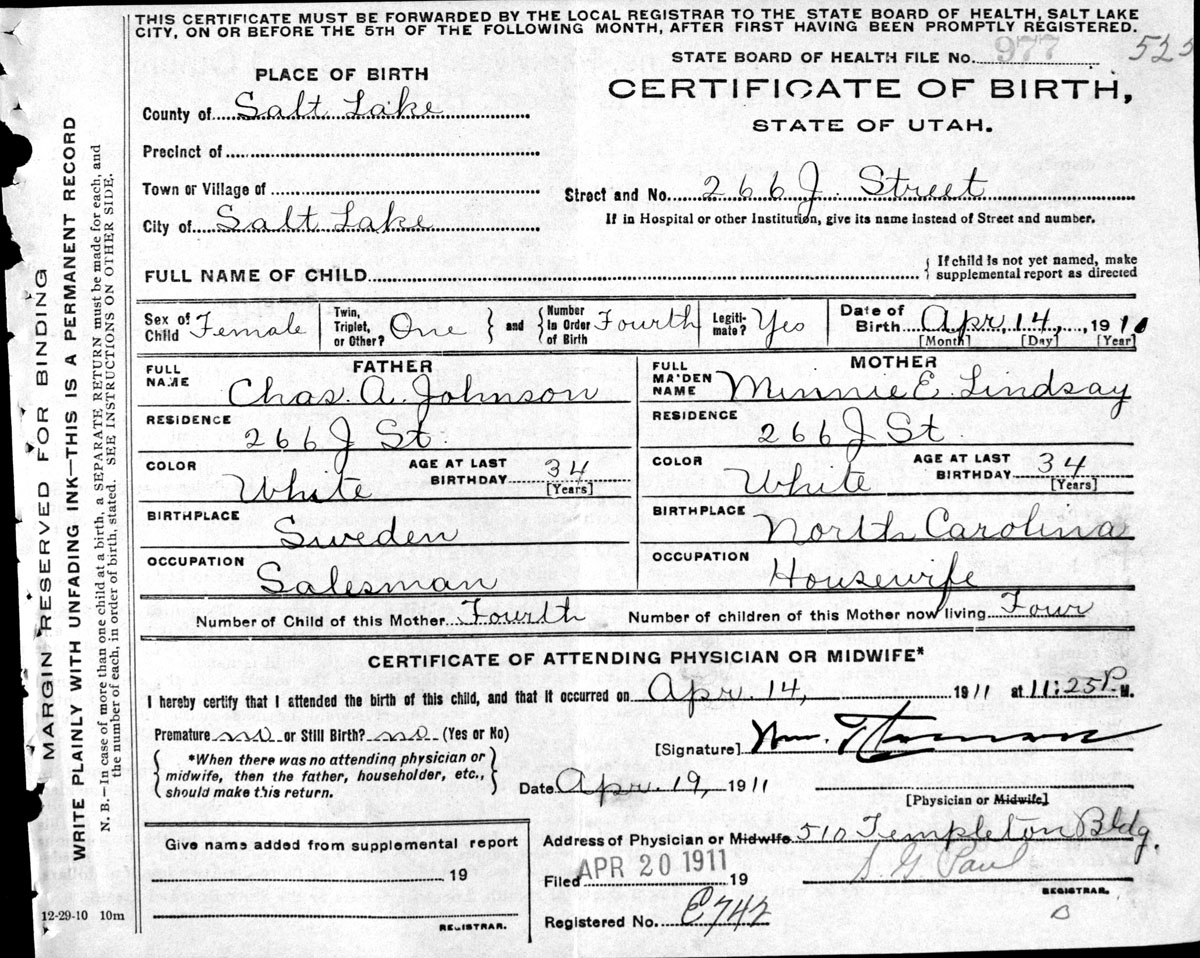 THIS CERTIFICATE MUST BE FORWARDED BY THE LOCAL REGISTRAR TO THE STATE BOARD OF HEALTH, SALT LAKE
CITY, ON OR BEFORE THE 5TH OF THE FOLLOWING MONTH, AFTER FIRST HAVING BEEN PROMPTLY REGISTERED.
STATE BOARD OF HEALTH FILE No. 977
PLACE OF BIRTH
CERTIFICATE OF BIRTH,
STATE OF UTAH.
County of Salt Lake
Precinct of
Town or Village of
Street and No. 266 J. Street
City of Salt Lake
If in Hospital or other Institution, give its name instead of Street and number.
FULL NAME OF CHILD
{ If child is not yet named, make
supplemental report as directed
Sex of Child Female
Twin, Triplet, or Other? One } and { Number in Order of Birth Fourth
Legiti-mate? Yes
Date of Birth Apr. 14, 1911
[Month] [Day] [Year]
FATHER
FULL NAME Chas. A. Johnson
RESIDENCE 266 J St.
COLOR White
AGE AT LAST BIRTHDAY 34 [Years]
BIRTHPLACE Sweden
OCCUPATION Salesman
MOTHER
FULL MAIDEN NAME Minnie E. Lindsay
RESIDENCE 266 J St.
COLOR White
AGE AT LAST BIRTHDAY 34 [Years]
BIRTHPLACE North Carolina
OCCUPATION Housewife
Number of Child of this Mother Fourth Number of children of this Mother now living Four
CERTIFICATE OF ATTENDING PHYSICIAN OR MIDWIFE*
I hereby certify that I attended the birth of this child, and that it occurred on Apr. 14, 1911 at 11:25 P. M.
Premature no or Still Birth? no (Yes or No)
{ *When there was no attending physician or
midwife, then the father, householder, etc.,
should make this return. }
[Signature] Wm.
Date Apr. 19, 1911
[Physician or Midwife]
Address of Physician or Midwife 510 Templeton Bldg.
Filed APR 20 1911 19
S. G. Paul
REGISTRAR.
Registered No. E742
Give name added from supplemental report
19
REGISTRAR.
12-29-10 10m
MARGIN RESERVED FOR BINDING
WRITE PLAINLY WITH UNFADING INK—THIS IS A PERMANENT RECORD
N. B.—In case of more than one child at a birth, a SEPARATE RETURN must be made for each, and
the number of each, in order of birth, stated. SEE INSTRUCTIONS ON OTHER SIDE.